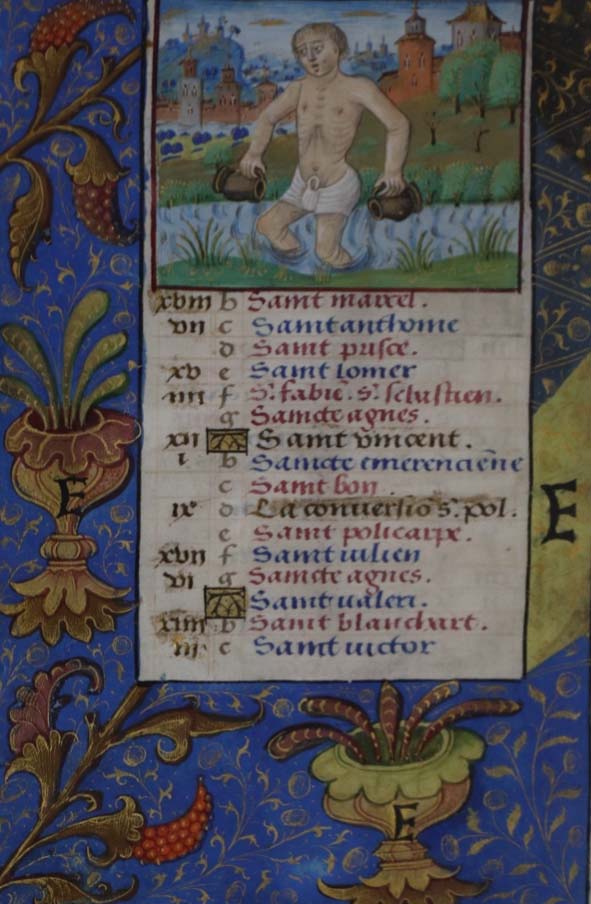 xviii b Saint marcel.
vii c Saint anthoine
d Saint prisce.
xv e Saint lomer
iiii f S. fabiē. S. sebastien.
g Saincte agnes.
xii A Saint vincent.
i b Saincte emerenciēne
c Saint bon.
ix d La conversio s. pol.
e Saint policarpe.
xvii f Saint iulien
vi g Saincte agnes.
A Saint valeri.
xiiii b Saint blanchart.
iii c Saint victor
E
E
E